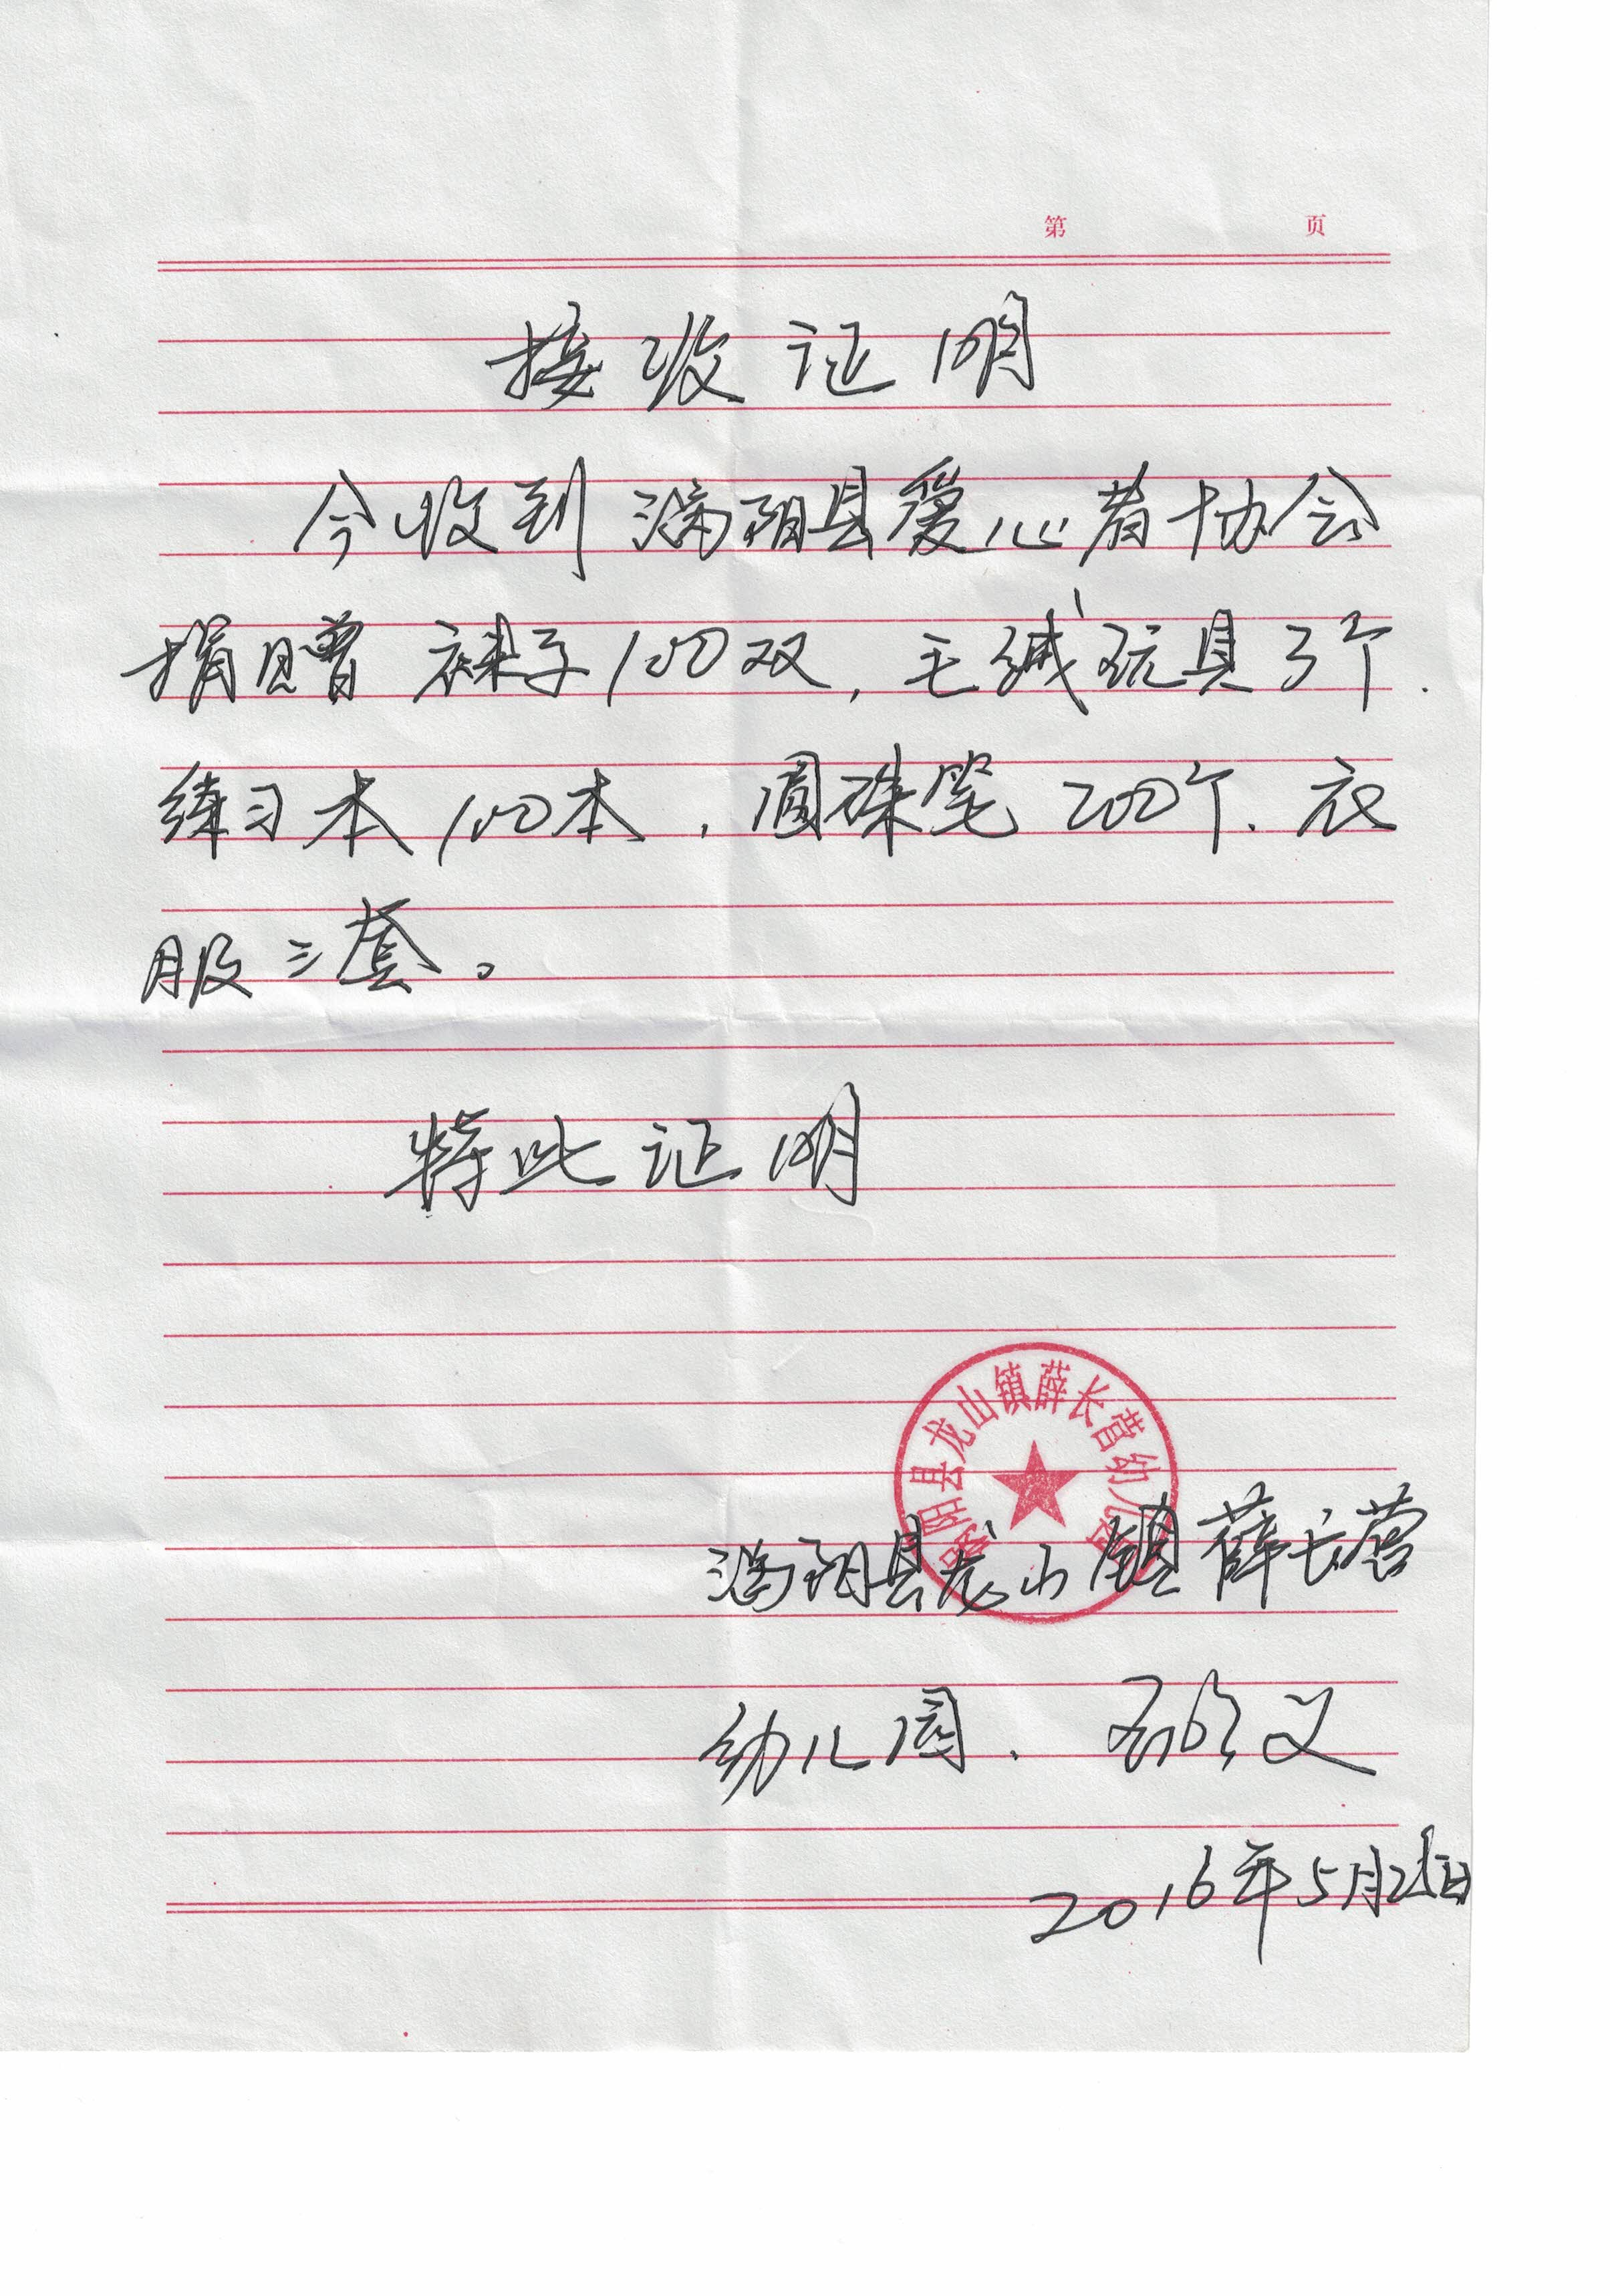 第 页
接收证明
今收到濉阳县爱心者协会
捐赠 袜子100双,毛绒玩具3个.
练习本100本,圆珠笔200个.衣
服三套。
特此证明
阳县龙山镇薛长营幼儿园
阳县龙山镇薛长营
幼儿园.
2016年5月2日